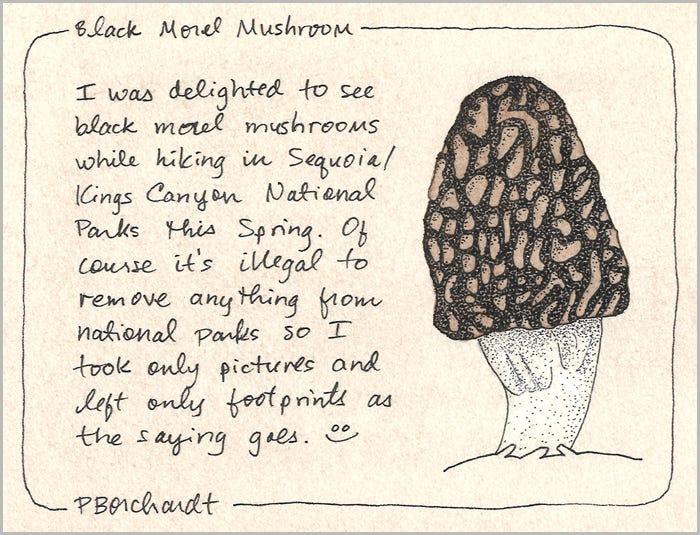 Black Morel Mushroom
I was delighted to see
black morel mushrooms
while hiking in Sequoia/
Kings Canyon National
Parks this Spring. Of
course it's illegal to
remove anything from
national parks so I
took only pictures and
left only footprints as
the saying goes. 🙂
PBorchardt